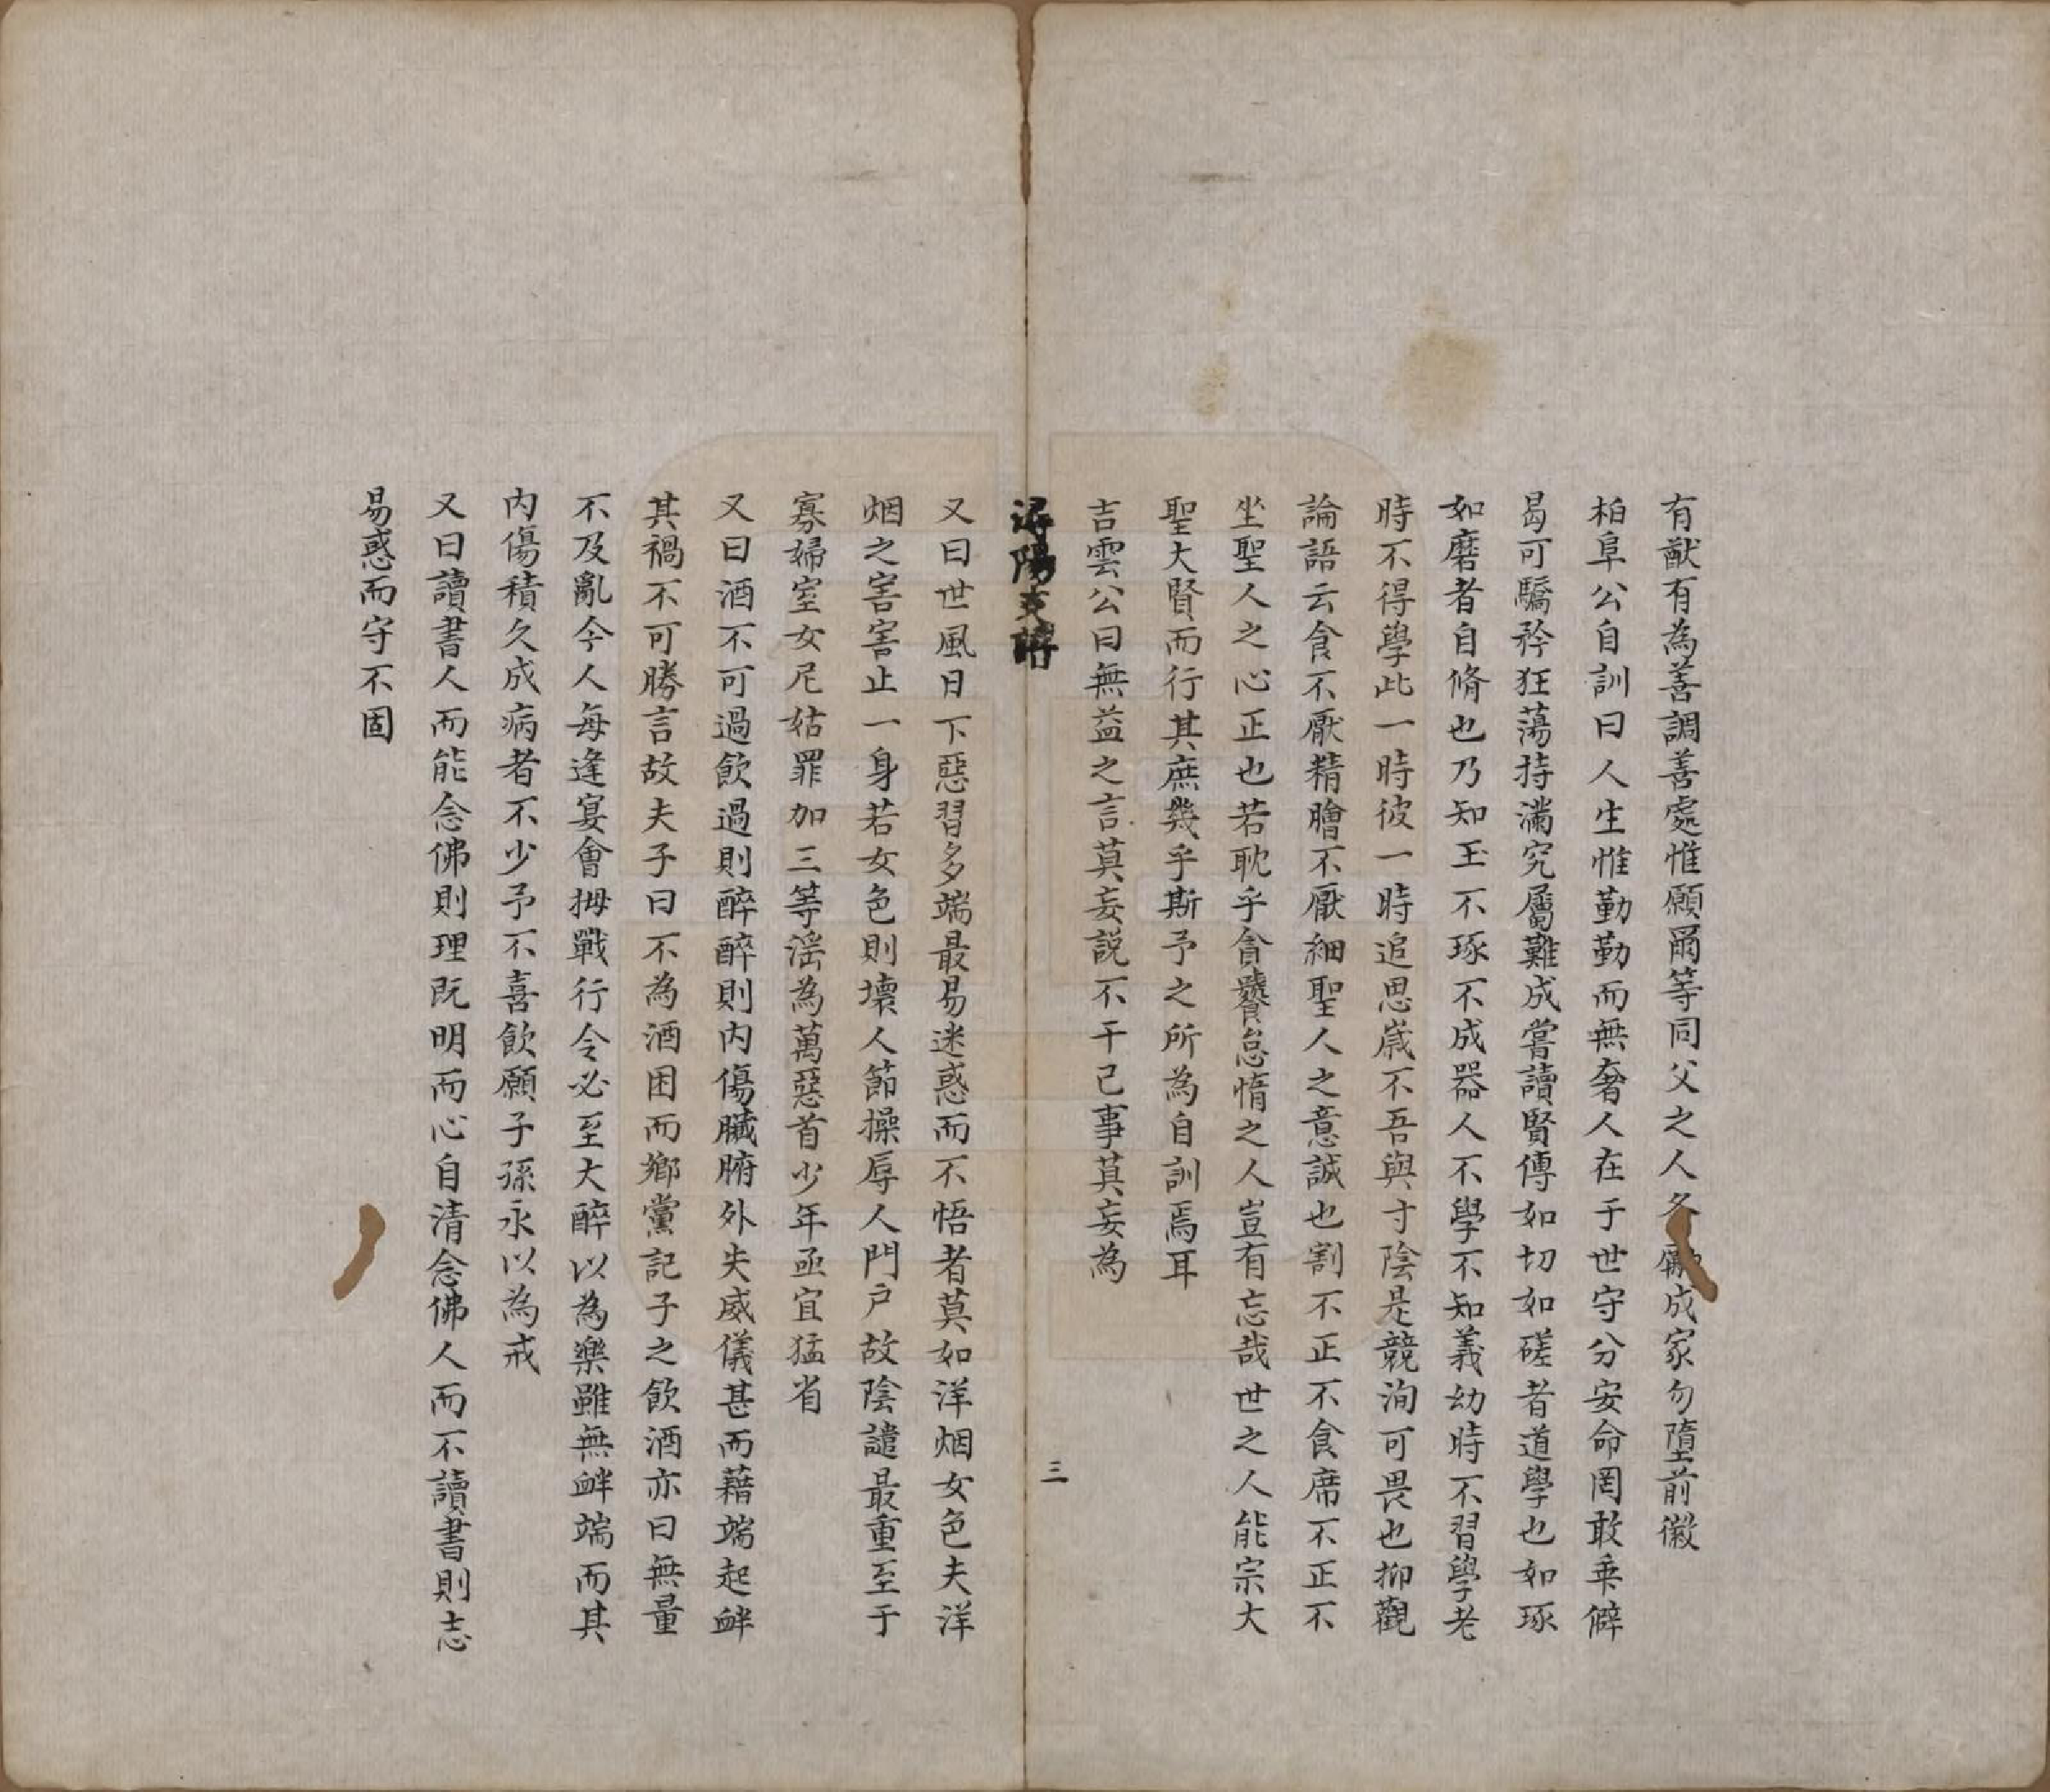 有猷有為善調善處惟願爾等同父之人各勵成家勿墮前徽
柏阜公自訓曰人生惟勤勤而無奢人在于世守分安命罔敢乖僻
曷可驕矜狂蕩持滿究屬難成嘗讀賢傳如切如磋者道學也如琢
如磨者自脩也乃知玉不琢不成器人不學不知義幼時不習學老
時不得學此一時彼一時追思歲不吾與寸陰是競洵可畏也抑觀
論語云食不厭精膾不厭細聖人之意誠也割不正不食席不正不
坐聖人之心正也若耽乎貪饕怠惰之人豈有忘哉世之人能宗大
聖大賢而行其庶幾乎斯予之所為自訓焉耳
吉雲公曰無益之言莫妄説不干己事莫妄為
潯陽支譜
三
又曰世風日下惡習多端最易迷惑而不悟者莫如洋烟女色夫洋
烟之害害止一身若女色則壞人節操辱人門户故陰譴最重至于
寡婦室女尼姑罪加三等滛為萬惡首少年亟宜猛省
又曰酒不可過飲過則醉醉則内傷臟腑外失威儀甚而藉端起衅
其禍不可勝言故夫子曰不為酒困而鄉黨記子之飲酒亦曰無量
不及亂今人每逢宴會拇戰行令必至大醉以為樂雖無衅端而其
内傷積久成病者不少予不喜飲願子孫永以為戒
又曰讀書人而能念佛則理既明而心自清念佛人而不讀書則志
易惑而守不固